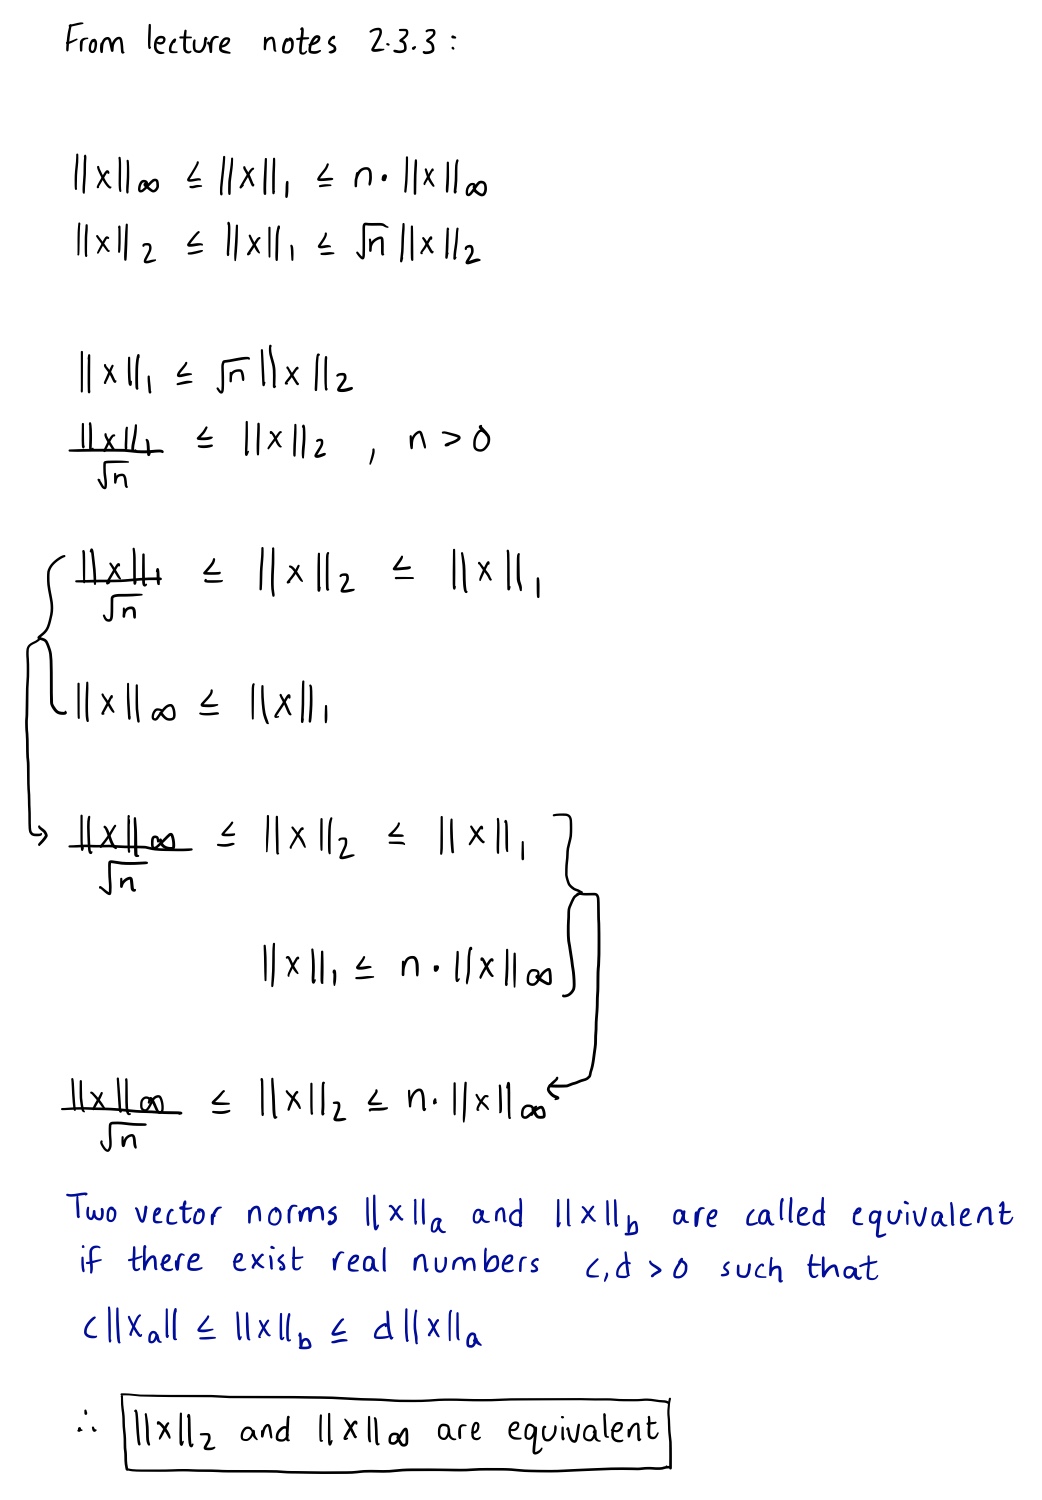 From lecture notes 2.3.3 :
||x||∞ ≤ ||x||₁ ≤ n· ||x||∞
||x||₂ ≤ ||x||₁ ≤ √n ||x||₂
||x||₁ ≤ √n ||x||₂
||x||₁/√n ≤ ||x||₂ , n > 0
||x||₁/√n ≤ ||x||₂ ≤ ||x||₁
||x||∞ ≤ ||x||₁
||x||∞/√n ≤ ||x||₂ ≤ ||x||₁
||x||₁ ≤ n · ||x||∞
||x||∞/√n ≤ ||x||₂ ≤ n· ||x||∞
Two vector norms ||x||ₐ and ||x||_b are called equivalent
if there exist real numbers c,d > 0 such that
c||xₐ|| ≤ ||x||_b ≤ d||x||ₐ
∴ ||x||₂ and ||x||∞ are equivalent